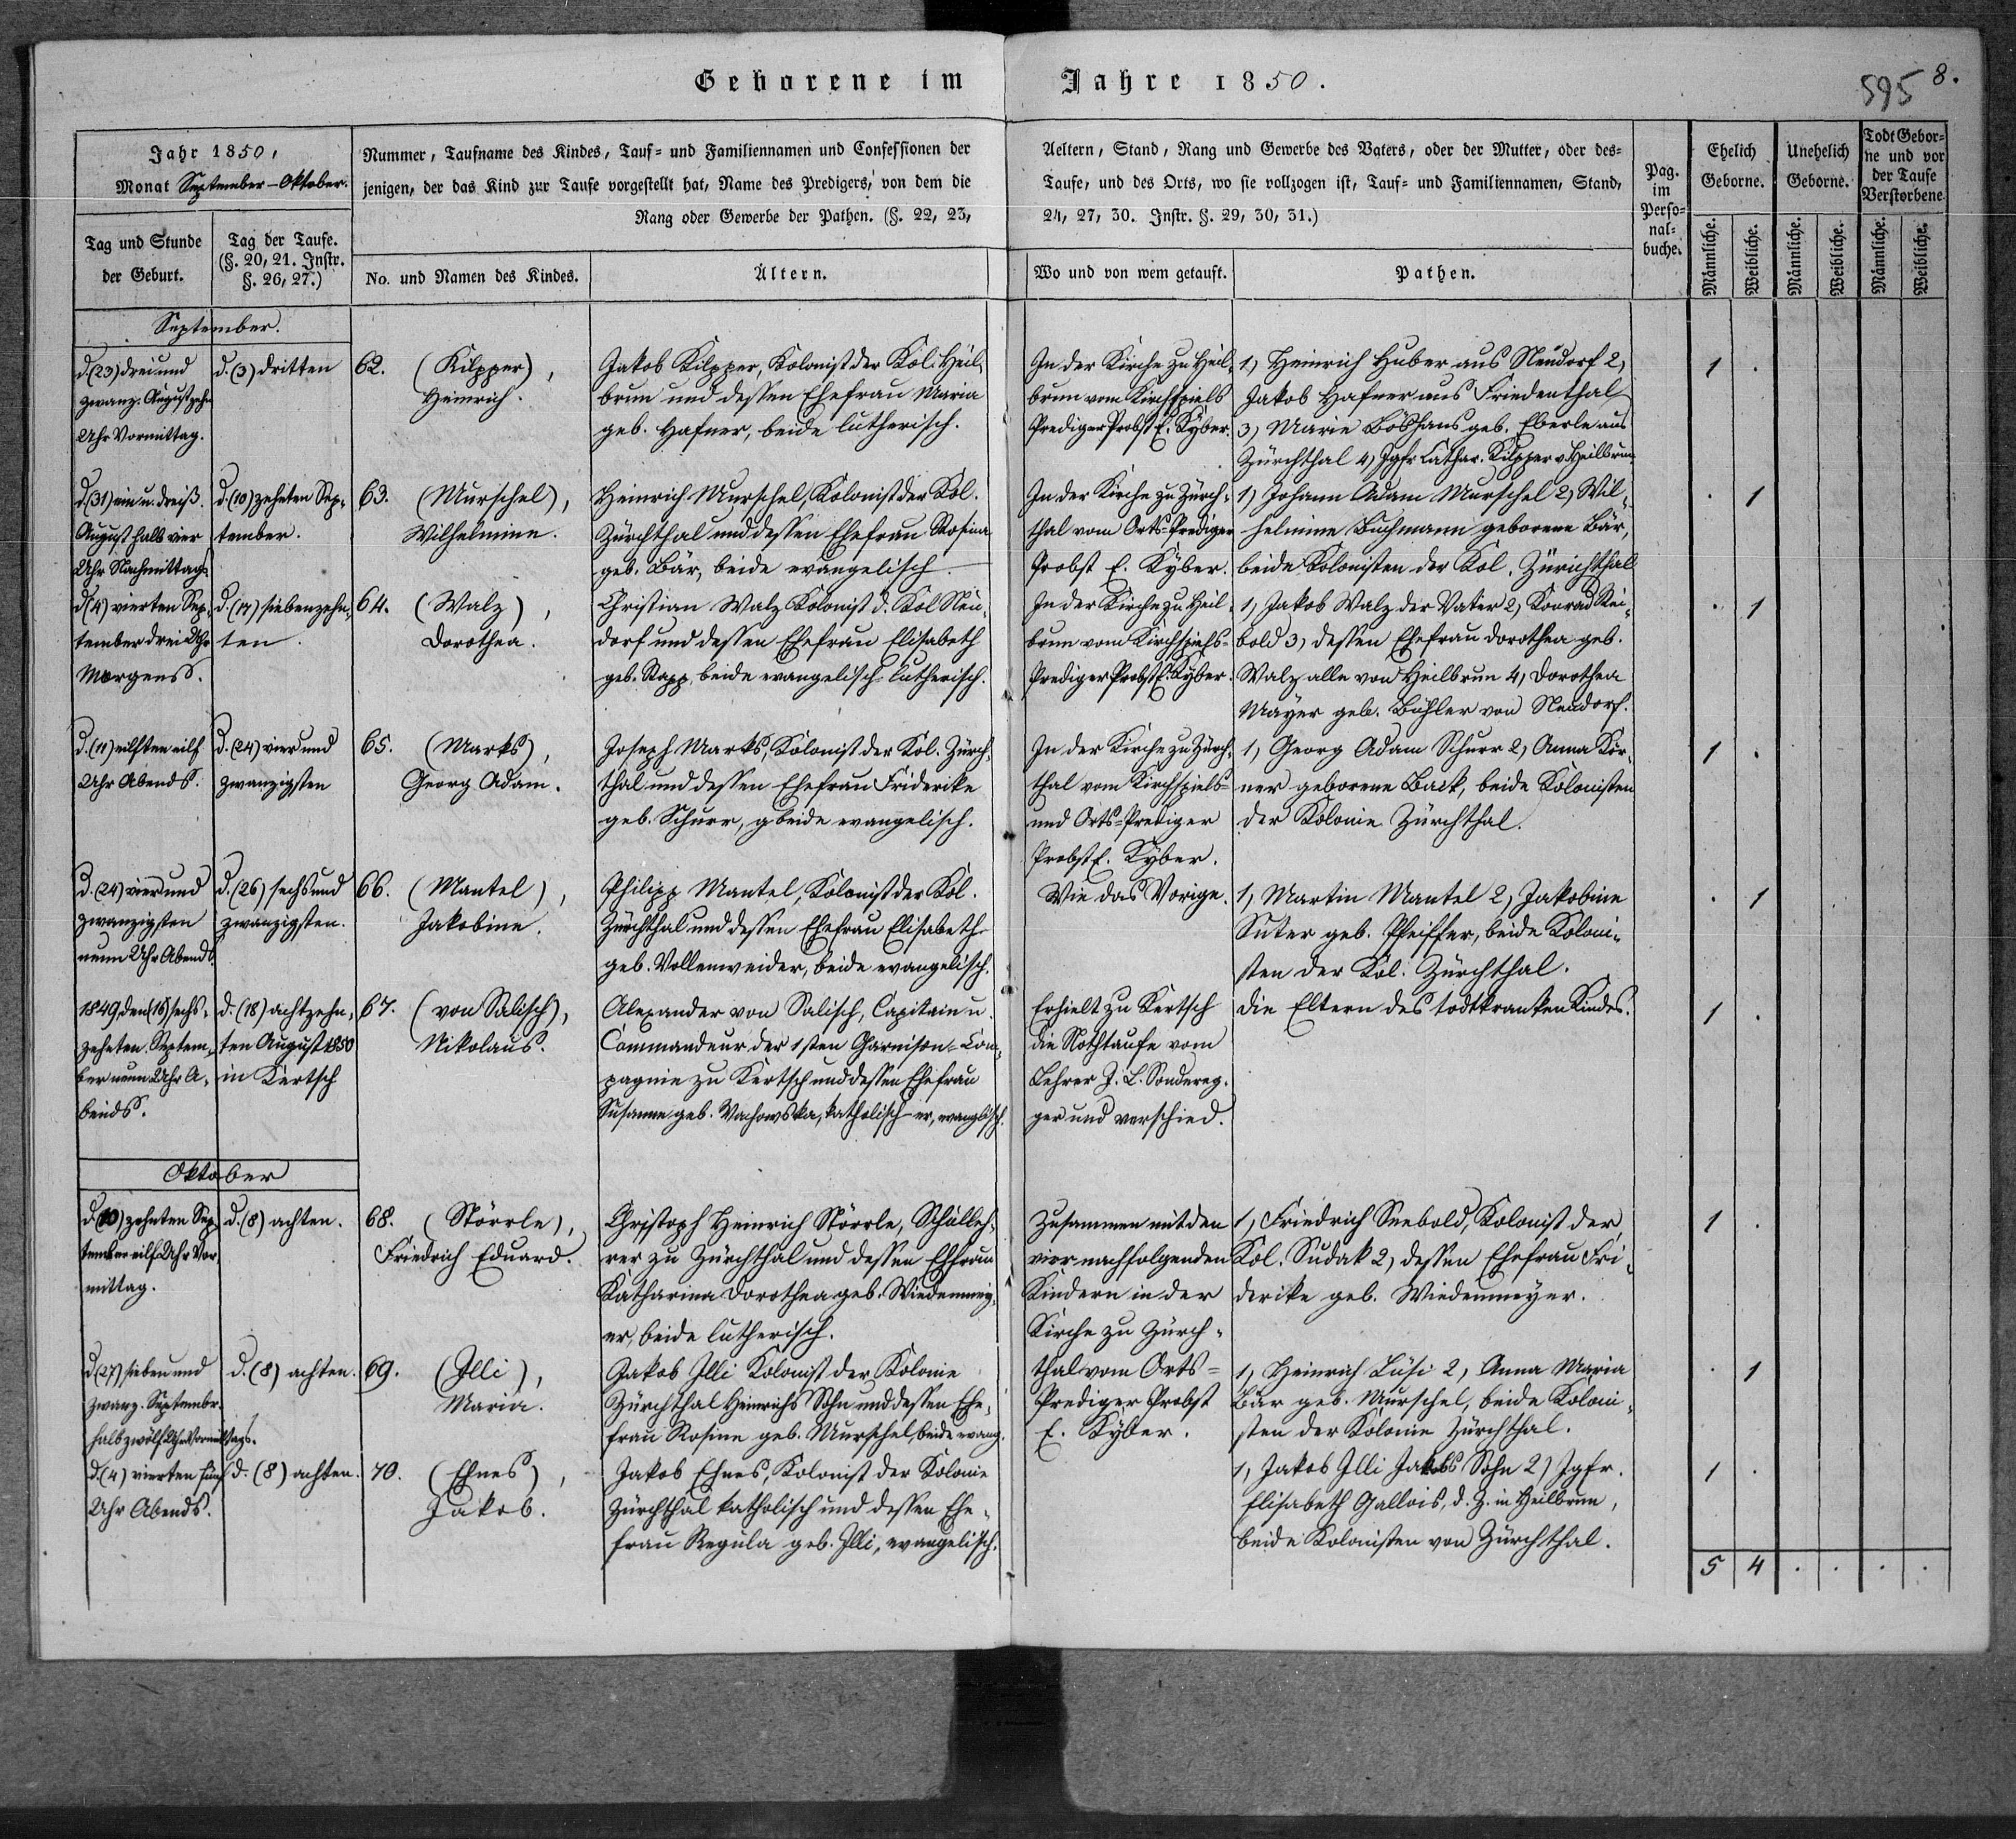 Geborene im Jahre 1850.
595 8.
Jahr 1850,
Monat September-Oktober.
Nummer, Taufname des Kindes, Tauf- und Familiennamen und Confessionen der Aeltern, Stand, Rang und Gewerbe des Vaters, oder der Mutter, oder des-
jenigen, der das Kind zur Taufe vorgestellt hat, Name des Predigers, von dem die Taufe, und des Orts, wo sie vollzogen ist, Tauf- und Familiennamen, Stand,
Rang oder Gewerbe der Pathen. (§. 22, 23, 24, 27, 30. Instr. §. 29, 30, 31.)
Pag.
im
Perso-
nal-
buche.
Ehelich
Geborne.
Unehelich
Geborne.
Todt Gebor-
ne und vor
der Taufe
Verstorbene
Tag und Stunde
der Geburt.
Tag der Taufe.
(§. 20, 21. Instr.
§. 26, 27.)
No. und Namen des Kindes.
Ältern.
Wo und von wem getauft.
Pathen.
Männliche.
Weibliche.
Männliche.
Weibliche.
Männliche.
Weibliche.
September.
d. (23) drei und
zwanz. August zehn
Uhr Vormittag.
d. (3) dritten
62. (Kilpper),
Heinrich.
Jakob Kilpper, Kolonist der Kol. Heil-
brun und dessen Ehefrau Maria
geb. Hafner, beide lutherisch.
In der Kirche zu Heil-
brun vom Kirchspiels
Prediger Probst E. Kyber.
1, Heinrich Huber aus Neudorf 2,
Jakob Hafner aus Friedenthal
3, Marie Böshans geb. Eberle aus
Zürchthal 4, Jgfr Cathar. Kilpper v Heilbrun
1 .
d. (31) ein u. dreiß.
August halb vier
Uhr Nachmittags
d. (10) zehnten Sep-
tember.
63. (Murschel),
Wilhelmine.
Heinrich Murschel, Kolonist der Kol.
Zürchthal und dessen Ehefrau Rosina
geb. Bär, beide evangelisch
In der Kirche zu Zürch-
thal vom Orts-Prediger
Probst E. Kyber.
1, Johann Adam Murschel 2, Wil-
helmine Buchmann geborene Bär,
beide Kolonisten der Kol. Zürichthal
. 1
d. (4) vierten Sep-
tember drei Uhr
Morgens.
d. (17) siebenzehn-
ten.
64. (Walz),
Dorothea.
Christian Walz Kolonist d. Kol Neu-
dorf und dessen Ehefrau Elisabeth
geb. Rapp, beide evangelisch lutherisch.
In der Kirche zu Heil-
brun vom Kirchspiels-
Prediger Probst E. Kyber.
1, Jakob Walz der Vater 2, Konrad Rei-
bold 3, dessen Ehefrau Dorothea geb.
Walz alle von Heilbrun 4, Dorothea
Mayer geb. Bühler von Neudorf.
. 1
d. (11) eilften eilf
Uhr Abends.
d. (24) vier und
zwanzigsten
65. (Marks),
Georg Adam.
Joseph Marks, Kolonist der Kol. Zürch-
thal und dessen Ehefrau Friderike
geb. Schurr, beide evangelisch.
In der Kirche zu Zürch-
thal vom Kirchspiels-
und Orts-Prediger
Probst E. Kyber.
1, Georg Adam Schurr 2, Anna Kör-
ner geborene Back, beide Kolonisten
der Kolonie Zürchthal.
1 .
d. (24) vier und
zwanzigsten
neun Uhr Abends.
d. (26) sechs und
zwanzigsten.
66. (Mantel),
Jakobine.
Philipp Mantel, Kolonist der Kol.
Zürchthal und dessen Ehefrau Elisabeth
geb. Vollenweider, beide evangelisch.
Wie das Vorige.
1, Martin Mantel 2, Jakobine
Suter geb. Pfeiffer, beide Koloni-
sten der Kol. Zürchthal.
. 1
1849 den (16) sechs-
zehnten Septem-
ber neun Uhr A-
bends.
d. (18) achtzehn-
ten August 1850
in Kertsch
67. (von Salisch),
Nikolaus.
Alexander von Salisch, Capitain u.
Commandeur der 1sten Garnison-Com-
pagnie zu Kertsch und dessen Ehefrau
Susanne geb. Wachowska, katholisch er, evangelisch.
Erhielt zu Kertsch
die Nothtaufe vom
Lehrer J. L. Sondereg-
ger und verschied.
Die Eltern des todtkranken Kindes.
1 .
Oktober
d. (10) zehnten Sep-
tember eilf Uhr Vor-
mittag.
d. (8) achten.
68. (Störrle),
Friedrich Eduard.
Christoph Heinrich Störrle, Schulleh-
rer zu Zürchthal und dessen Ehfrau
Katharina Dorothea geb. Wiedenmey-
er, beide lutherisch.
Zusammen mit den
vier nachfolgenden
Kindern in der
Kirche zu Zürch-
thal vom Orts-
Prediger Probst
E. Kyber.
1, Friedrich Seebold, Kolonist der
Kol. Sudak 2, dessen Ehefrau Fri-
derike geb. Wiedenmeyer.
1 .
d. (27) sieben und
zwanz. Septembr.
halb zwölf Uhr Vormittags.
d. (8) achten.
69. (Illi),
Maria.
Jakob Illi Kolonist der Kolonie
Zürchthal Heinrichs Sohn und dessen Ehe-
frau Rosine geb. Murschel, beide evang.
1, Heinrich Lüsi 2, Anna Maria
Bär geb. Murschel, beide Koloni-
sten der Kolonie Zürchthal.
. 1
d. (4) vierten fünf
Uhr Abends.
d. (8) achten.
70. (Ehnes),
Jakob.
Jakob Ehnes, Kolonist der Kolonie
Zürchthal katholisch und dessen Ehe-
frau Regula geb. Illi, evangelisch.
1, Jakob Illi Jakobs Sohn 2) Jgfr.
Elisabeth Gallois, d. Z. in Heilbrun,
beide Kolonisten von Zürchthal.
1 .
5 4 . . . .